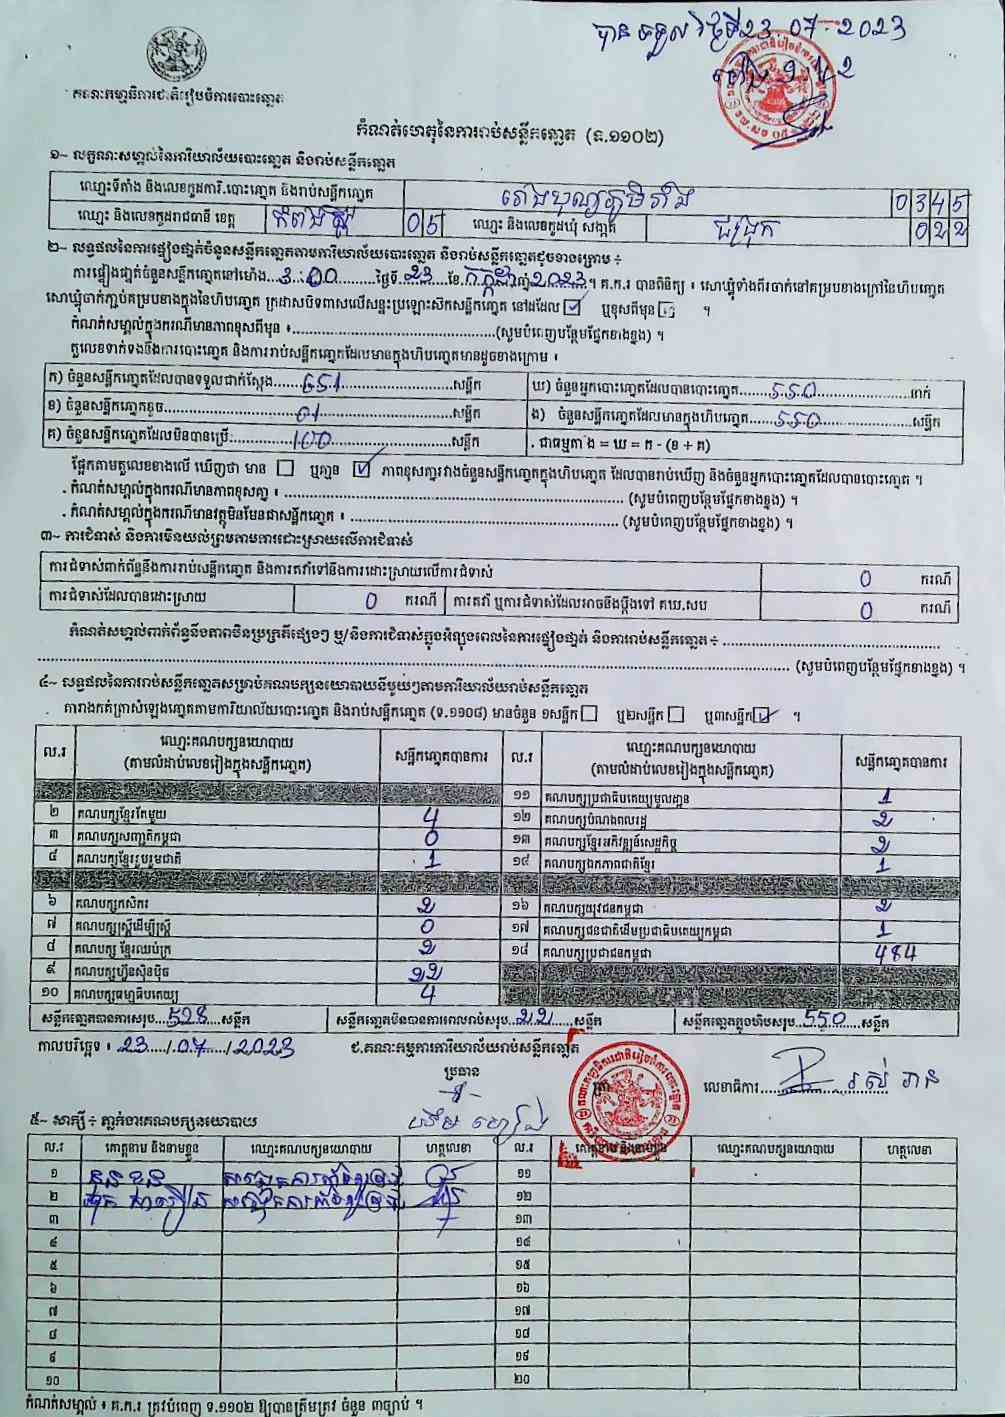 បានទទួល ថ្ងៃទី23-07-2023
គណៈកម្មាធិការជាតិរៀបចំការបោះឆ្នោត
កំណត់ហេតុនៃការរាប់សន្លឹកឆ្នោត (ទ.១១០២)
១~ លក្ខណៈសម្គាល់នៃការិយាល័យបោះឆ្នោត និងរាប់សន្លឹកឆ្នោត
ឈ្មោះទីតាំង និងលេខកូដការិ.បោះឆ្នោត និងរាប់សន្លឹកឆ្នោត 0345
ឈ្មោះ និងលេខកូដរាជធានី ខេត្ត កំពង់ស្ពឺ 05 ឈ្មោះ និងលេខកូដឃុំ សង្កាត់ 022
២~ លទ្ធផលនៃការផ្ទៀងផ្ទាត់ចំនួនសន្លឹកឆ្នោតតាមការិយាល័យបោះឆ្នោត និងរាប់សន្លឹកឆ្នោតដូចខាងក្រោម ÷
ការផ្ទៀងផ្ទាត់ចំនួនសន្លឹកឆ្នោតនៅម៉ោង 3:00 ថ្ងៃទី 23 ខែ កក្កដា ឆ្នាំ 2023។ គ.ក.រ បានពិនិត្យ ៖ សោឃ្លុំទាំងពីរចាក់នៅគម្របខាងក្រៅនៃហិបឆ្នោត
សោឃ្លុំចាក់ភ្ជាប់គម្របខាងក្នុងនៃហិបឆ្នោត ក្រដាសបិទពាសលើសន្ទះប្រឡោះស៊កសន្លឹកឆ្នោត នៅដដែល ☑ ឬខុសពីមុន ☐ ។
កំណត់សម្គាល់ក្នុងករណីមានភាពខុសពីមុន ៖ (សូមបំពេញបន្ថែមផ្នែកខាងខ្នង) ។
តួលេខទាក់ទងនឹងការបោះឆ្នោត និងការរាប់សន្លឹកឆ្នោតដែលមានក្នុងហិបឆ្នោតមានដូចខាងក្រោម ៖
ក) ចំនួនសន្លឹកឆ្នោតដែលបានទទួលជាក់ស្តែង 651 សន្លឹក ឃ) ចំនួនអ្នកបោះឆ្នោតដែលបានបោះឆ្នោត 550 នាក់
ខ) ចំនួនសន្លឹកឆ្នោតខូច 01 សន្លឹក ង) ចំនួនសន្លឹកឆ្នោតដែលមានក្នុងហិបឆ្នោត 550 សន្លឹក
គ) ចំនួនសន្លឹកឆ្នោតដែលមិនបានប្រើ 100 សន្លឹក . ជាធម្មតា ង = ឃ = ក - (ខ + គ)
ផ្អែកតាមតួលេខខាងលើ ឃើញថា មាន ☐ ឬគ្មាន ☑ ភាពខុសគ្នារវាងចំនួនសន្លឹកឆ្នោតក្នុងហិបឆ្នោត ដែលបានរាប់ឃើញ និងចំនួនអ្នកបោះឆ្នោតដែលបានបោះឆ្នោត ។
. កំណត់សម្គាល់ក្នុងករណីមានភាពខុសគ្នា ៖ (សូមបំពេញបន្ថែមផ្នែកខាងខ្នង) ។
. កំណត់សម្គាល់ក្នុងករណីមានវត្ថុមិនមែនជាសន្លឹកឆ្នោត ៖ (សូមបំពេញបន្ថែមផ្នែកខាងខ្នង) ។
៣~ ការជំទាស់ និងការមិនយល់ព្រមតាមការដោះស្រាយលើការជំទាស់
ការជំទាស់ពាក់ព័ន្ធនឹងការរាប់សន្លឹកឆ្នោត និងការតវ៉ាទៅនឹងការដោះស្រាយលើការជំទាស់ 0 ករណី
ការជំទាស់ដែលបានដោះស្រាយ 0 ករណី ការតវ៉ា ឬការជំទាស់ដែលអាចនឹងប្តឹងទៅ គឃ.សប 0 ករណី
កំណត់សម្គាល់ពាក់ព័ន្ធនឹងភាពមិនប្រក្រតីផ្សេងៗ ឬ/និងការជំទាស់ក្នុងអំឡុងពេលនៃការផ្ទៀងផ្ទាត់ និងការរាប់សន្លឹកឆ្នោត ÷
(សូមបំពេញបន្ថែមផ្នែកខាងខ្នង) ។
៤~ លទ្ធផលនៃការរាប់សន្លឹកឆ្នោតសម្រាប់គណបក្សនយោបាយនីមួយៗតាមការិយាល័យរាប់សន្លឹកឆ្នោត
តារាងកត់ត្រាសំឡេងឆ្នោតតាមការិយាល័យបោះឆ្នោត និងរាប់សន្លឹកឆ្នោត (ទ.១១០៨) មានចំនួន ១សន្លឹក ☐ ឬ២សន្លឹក ☐ ឬ៣សន្លឹក ☑ ។
ល.រ ឈ្មោះគណបក្សនយោបាយ (តាមលំដាប់លេខរៀងក្នុងសន្លឹកឆ្នោត) សន្លឹកឆ្នោតបានការ ល.រ ឈ្មោះគណបក្សនយោបាយ (តាមលំដាប់លេខរៀងក្នុងសន្លឹកឆ្នោត) សន្លឹកឆ្នោតបានការ
១១ គណបក្សប្រជាធិបតេយ្យមូលដ្ឋាន 1
២ គណបក្សខ្មែរតែមួយ 4 ១២ គណបក្សបំណងពលរដ្ឋ 2
៣ គណបក្សសញ្ជាតិកម្ពុជា 0 ១៣ គណបក្សខ្មែរអភិវឌ្ឍន៍សេដ្ឋកិច្ច 2
៤ គណបក្សខ្មែររួបរួមជាតិ 1 ១៤ គណបក្សឯកភាពជាតិខ្មែរ 1
៦ គណបក្សកសិករ 2 ១៦ គណបក្សយុវជនកម្ពុជា 2
៧ គណបក្សស្ត្រីដើម្បីស្ត្រី 0 ១៧ គណបក្សជនជាតិដើមប្រជាធិបតេយ្យកម្ពុជា 1
៨ គណបក្ស ខ្មែរឈប់ក្រ 2 ១៨ គណបក្សប្រជាជនកម្ពុជា 484
៩ គណបក្សហ្វ៊ុនស៊ិនប៉ិច 22
១០ គណបក្សធម្មាធិបតេយ្យ 4
សន្លឹកឆ្នោតបានការសរុប 528 សន្លឹក សន្លឹកឆ្នោតមិនបានការពេលរាប់សរុប 22 សន្លឹក សន្លឹកឆ្នោតក្នុងហិបសរុប 550 សន្លឹក
កាលបរិច្ឆេទ ៖ 23 / 07 / 2023 ជ.គណៈកម្មការការិយាល័យរាប់សន្លឹកឆ្នោត
ប្រធាន
លេខាធិការ
៥~ សាក្សី ÷ ភ្នាក់ងារគណបក្សនយោបាយ
ល.រ គោត្តនាម និងនាមខ្លួន ឈ្មោះគណបក្សនយោបាយ ហត្ថលេខា ល.រ គោត្តនាម និងនាមខ្លួន ឈ្មោះគណបក្សនយោបាយ ហត្ថលេខា
១ ១១
២ ១២
៣ ១៣
៤ ១៤
៥ ១៥
៦ ១៦
៧ ១៧
៨ ១៨
៩ ១៩
១០ ២០
កំណត់សម្គាល់ ៖ គ.ក.រ ត្រូវបំពេញ ទ.១១០២ ឱ្យបានត្រឹមត្រូវ ចំនួន ៣ច្បាប់ ។